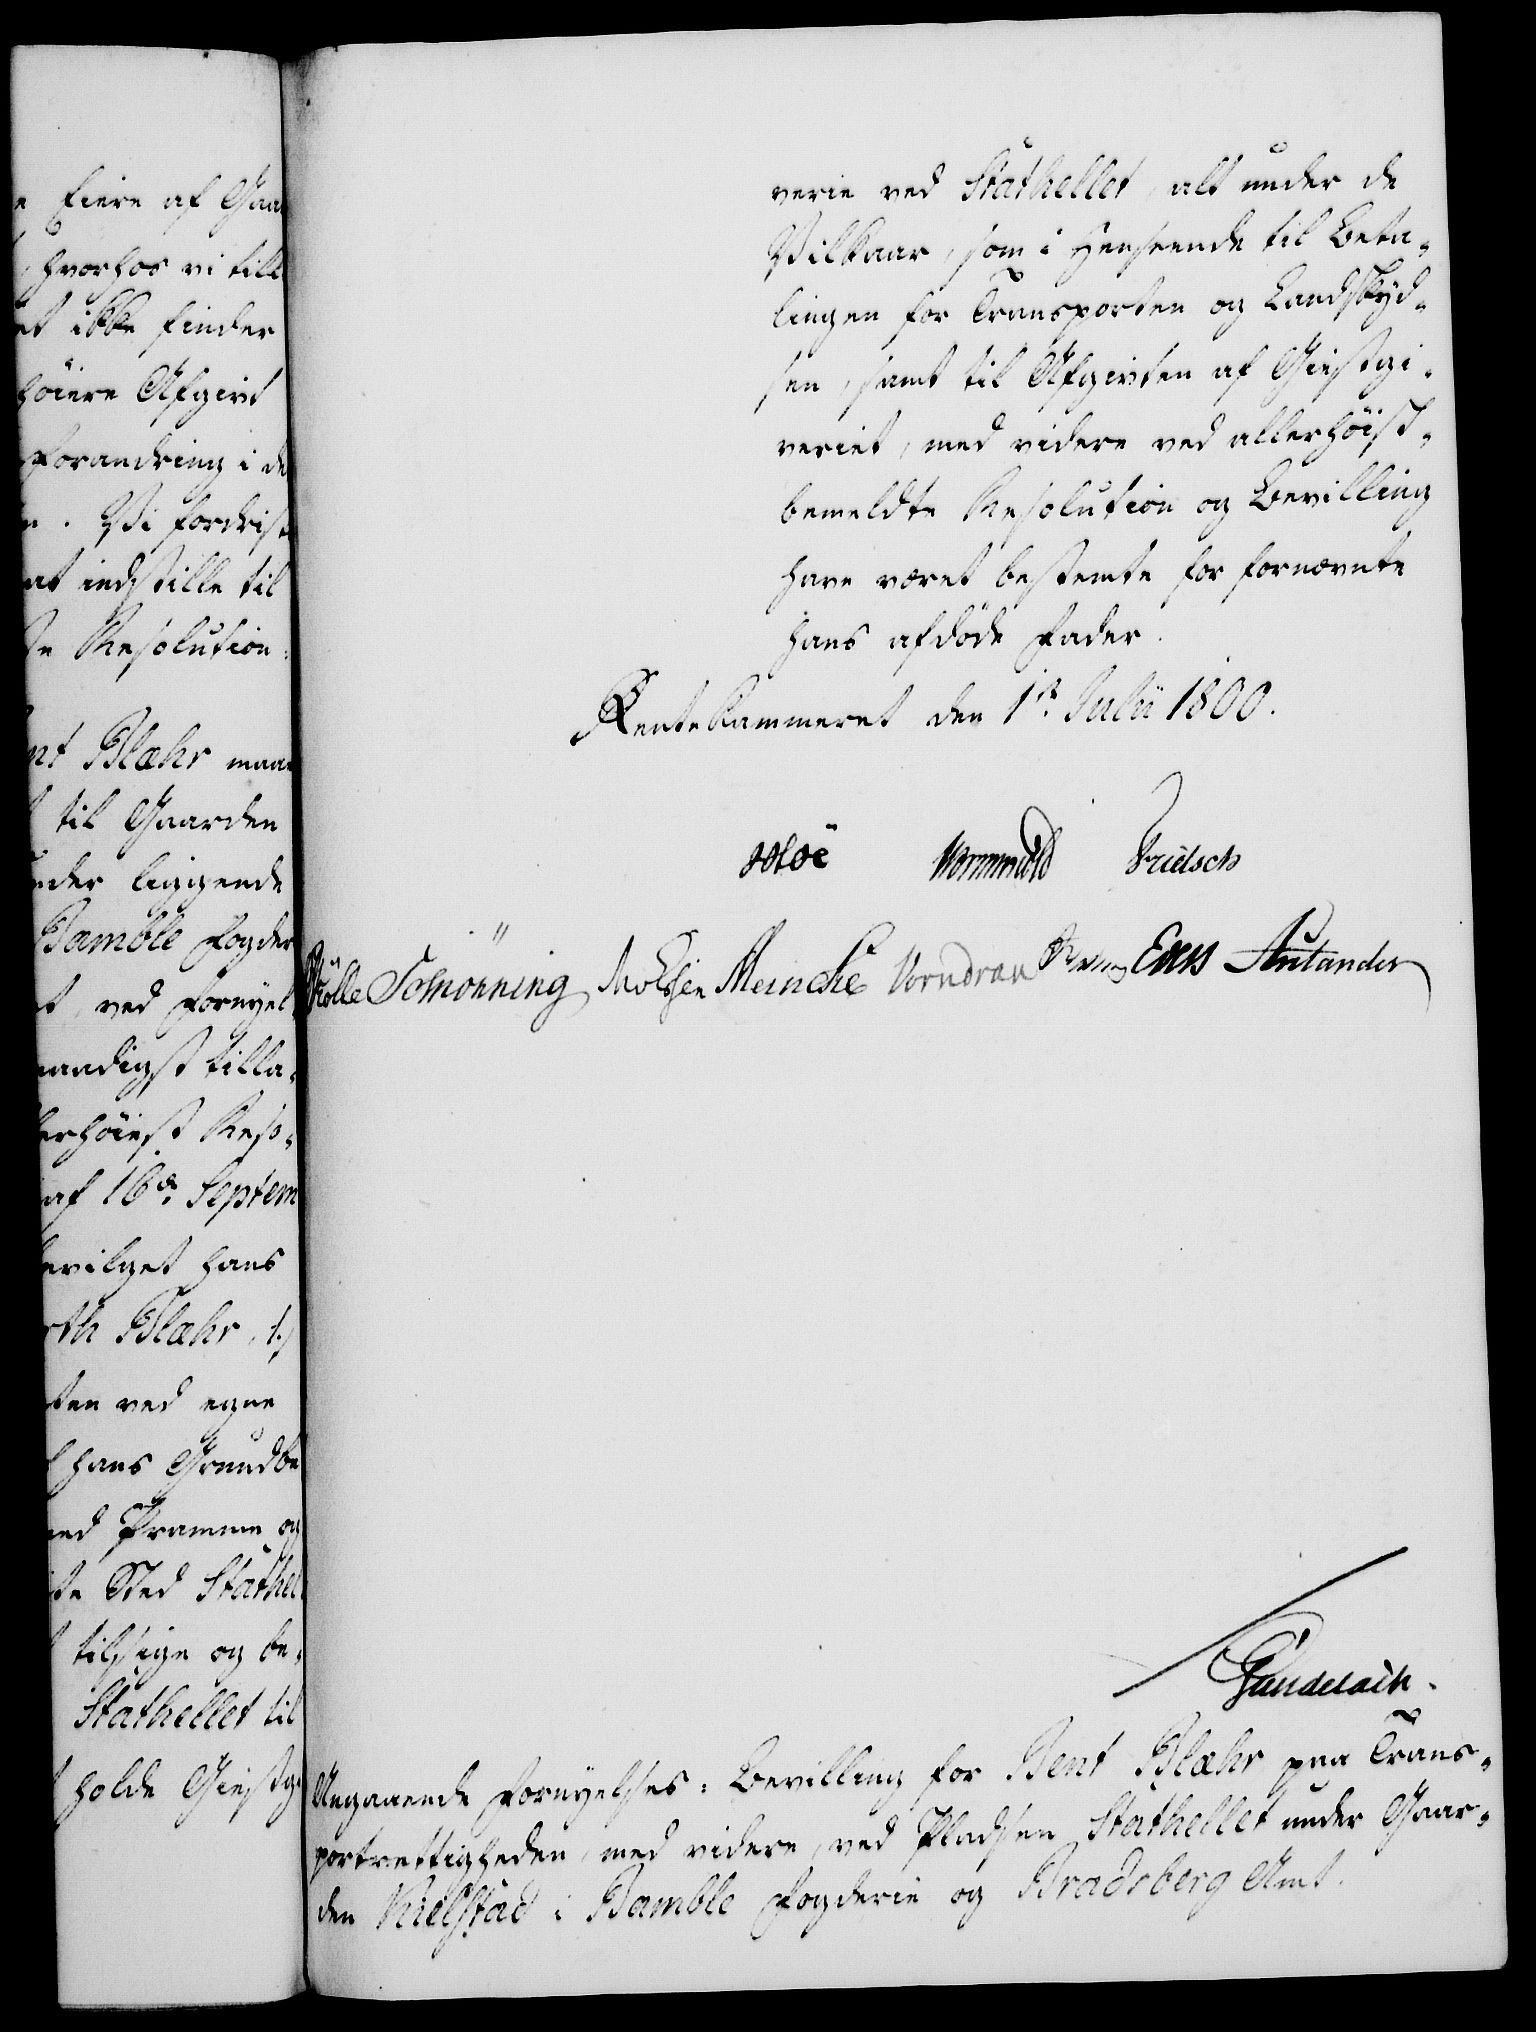 e Eiere af Gaar
hvorhos vi till
et ikke finder
höiere Afgivt
Forandring i de
n. Vi fordrist
at indstille til
ste Resolution:
nt Blæhr maae
til Gaarden
nder liggende
Bamble Fogder
t, ved Fornyel
naadigst tilla-
lerhöiest Reso-
af 16de Septem
bevilget hans
rth Blæhr, 1.)
ten ved egne
hans Grundbe
med Pramme og
te Sted Stathel
tilsige og be-
Stathellet til
holde Giestgi
verie ved Stathellet, alt under de
Vilkaar, som i Henseende til Beta-
lingen for Transporten og Landskyd-
sen, samt til Afgivten af Giestgi-
veriet, med videre ved allerhöist-
bemeldte Resolution og Bevilling
have været bestemte for fornævnte
hans afdöde Fader.
RenteKammeret den 1te Julii 1800.
Hoë Wormskiold Frielsch
Rölle Schönning Meincke Vorndran
Pandelach.
Angaaende Fornyelses-Bevilling for Bent Blæhr paa Trans-
portrettigheden, med videre, ved Pladsen Stathellet under Gaar-
den Kielstad i Bamble Fogderie og Bradsberg Amt.